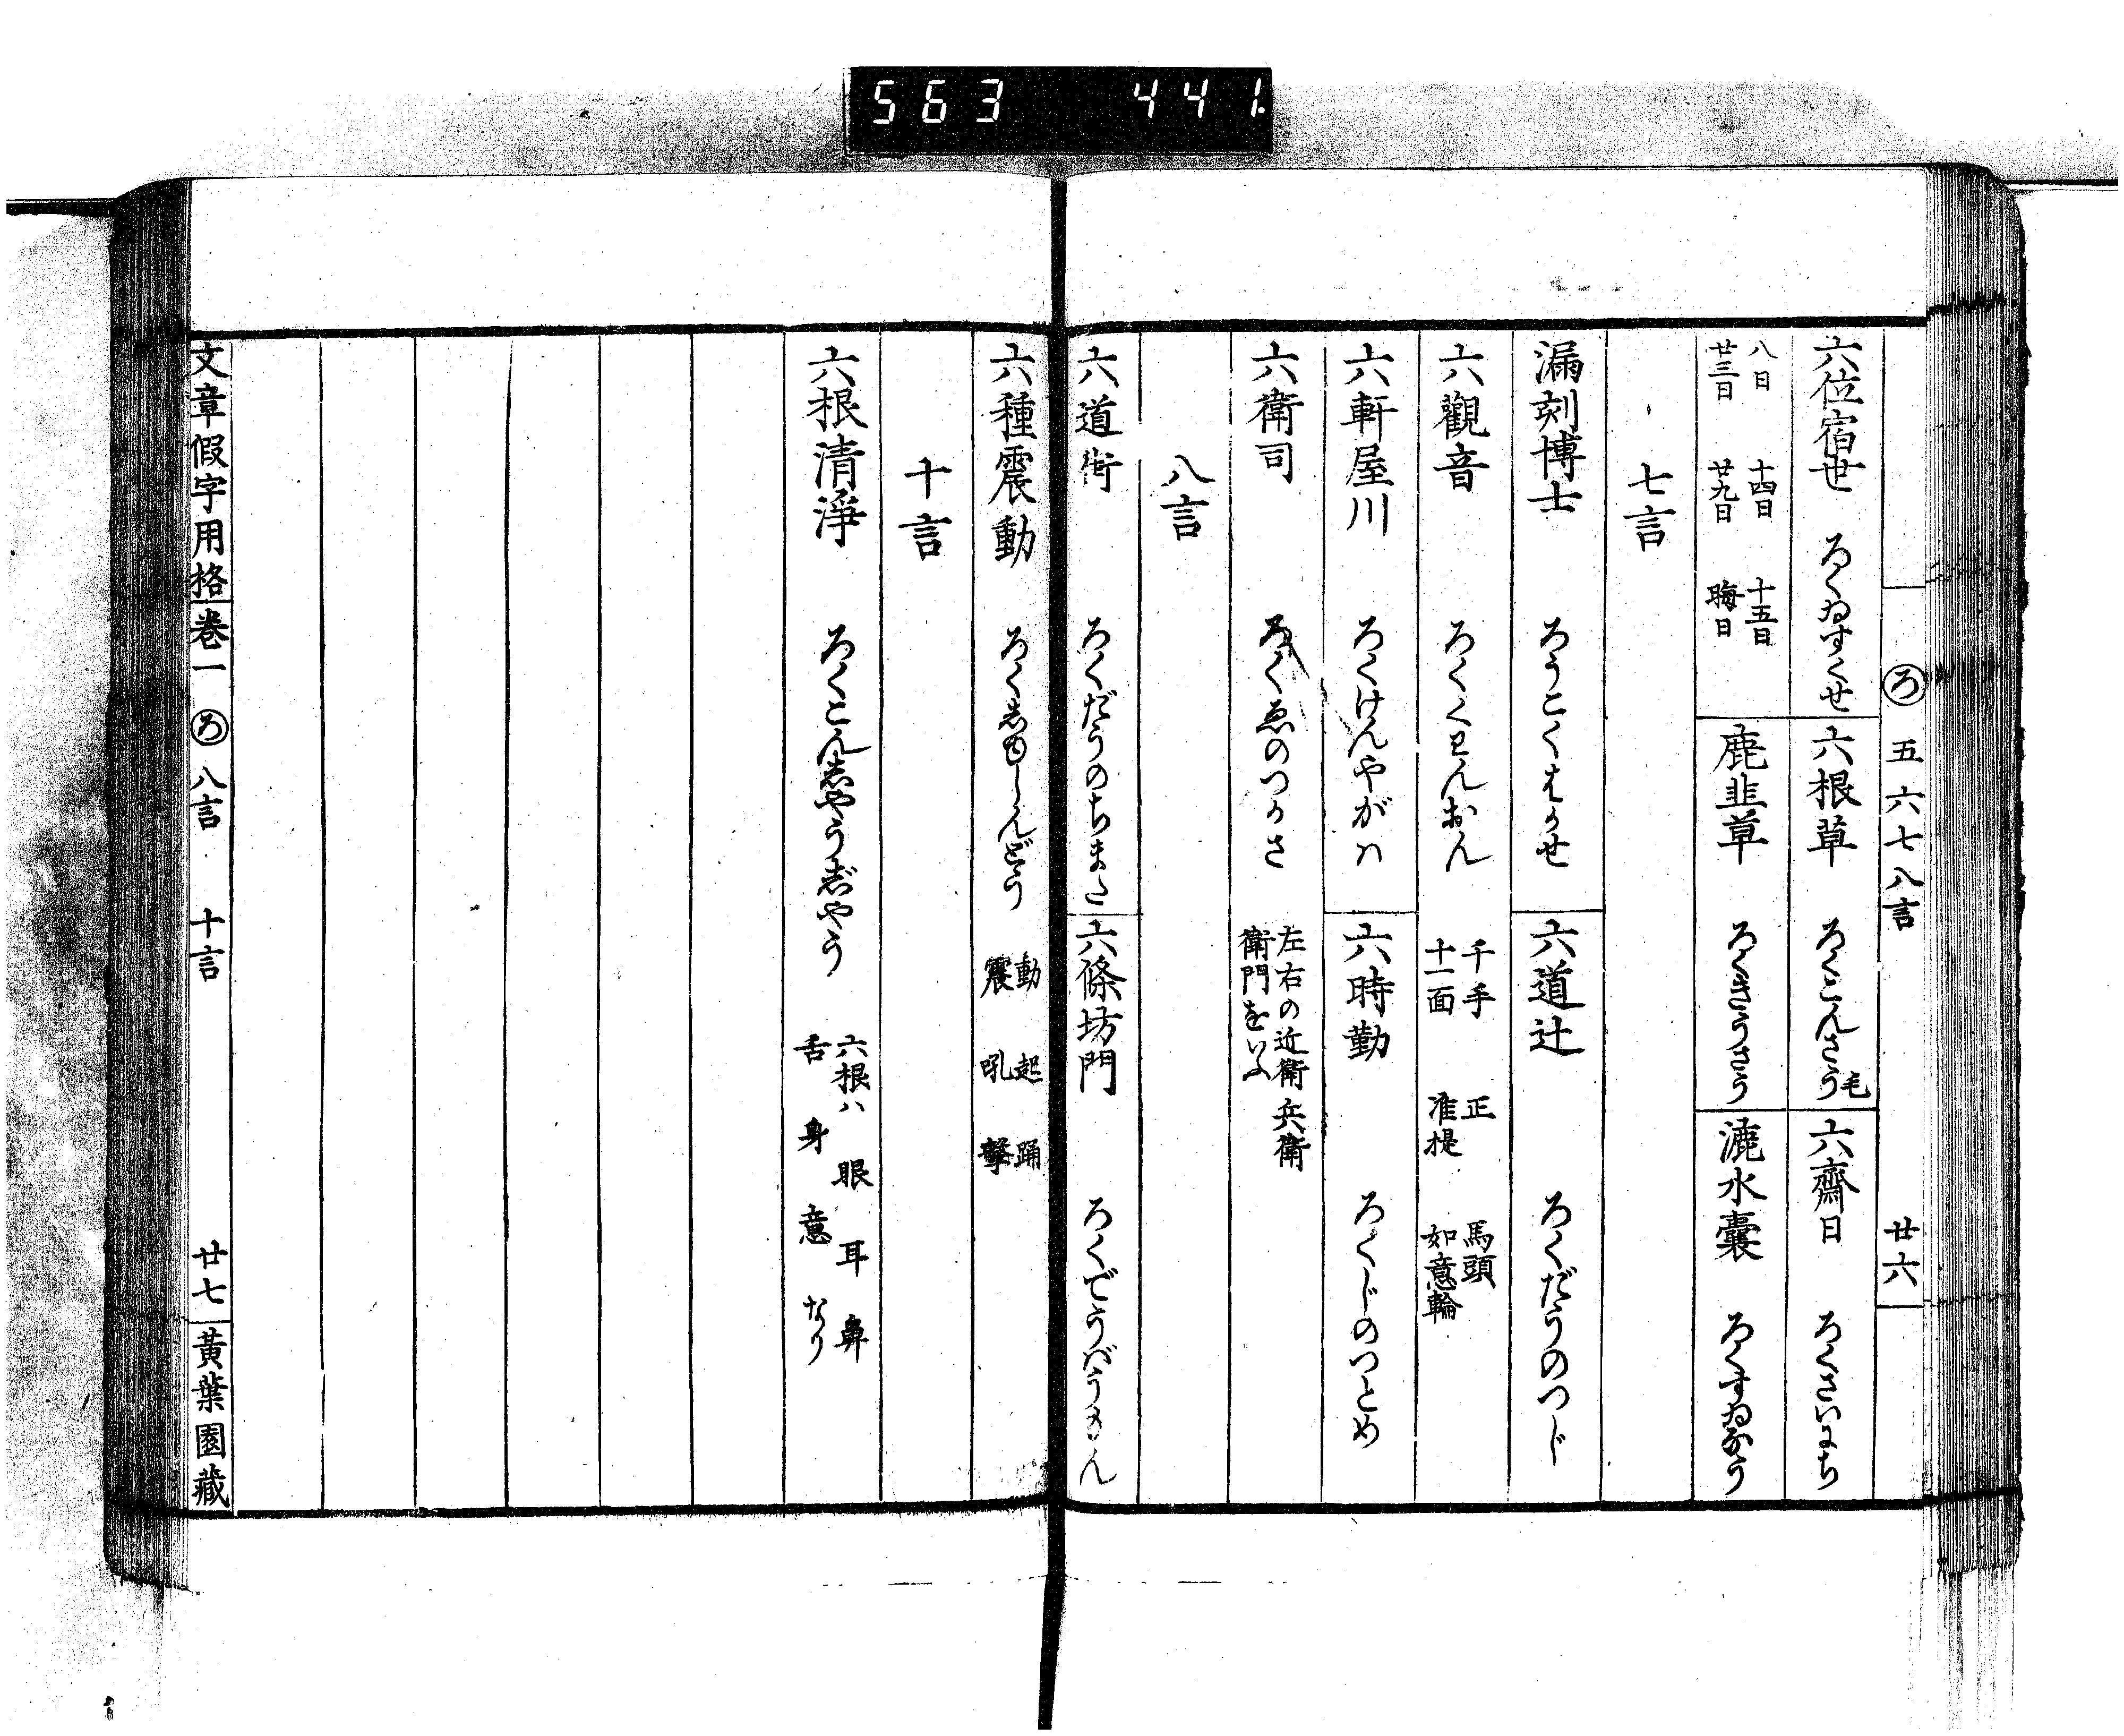 563 441
ろ 五六七八言 廿六
六位宿世 ろくゐすくせ
六根草 ろくこんさう 毛
六齋日 ろくさいにち
八日 十四日 十五日
廿三日 廿九日 晦日
鹿韮草 ろくきうさう
漉水嚢 ろくすゐなう
七言
漏刻博士 ろうこくはかせ
六道辻 ろくだうのつじ
六觀音 ろくくわんおん
千手 正 馬頭
十一面 准提 如意輪
六軒屋川 ろくけんやがハ
六時勤 ろくじのつとめ
六衛司 ろくゑのつかさ
左右の近衛 兵衛
衛門をいふ
八言
六道街 ろくだうのちまた
六條坊門 ろくでうばうもん
六種震動 ろくしゆしんどう
動 起 踊
震 吼 擊
十言
六根清淨 ろくこんしやうじやう
六根ハ 眼 耳 鼻
舌 身 意 なり
文章假字用格 卷一 ろ 八言 十言 廿七 黃葉園藏